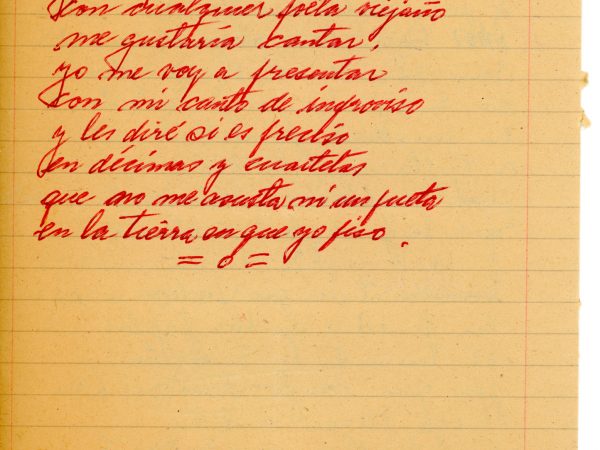 con cualquier poeta viejano
me gustaria cantar,
yo me voy a presentar
con mi canto de improviso
y les diré si es preciso
en décimas y cuartetas
que no me asusta ni un pueta
en la tierra en que yo piso.
= o =